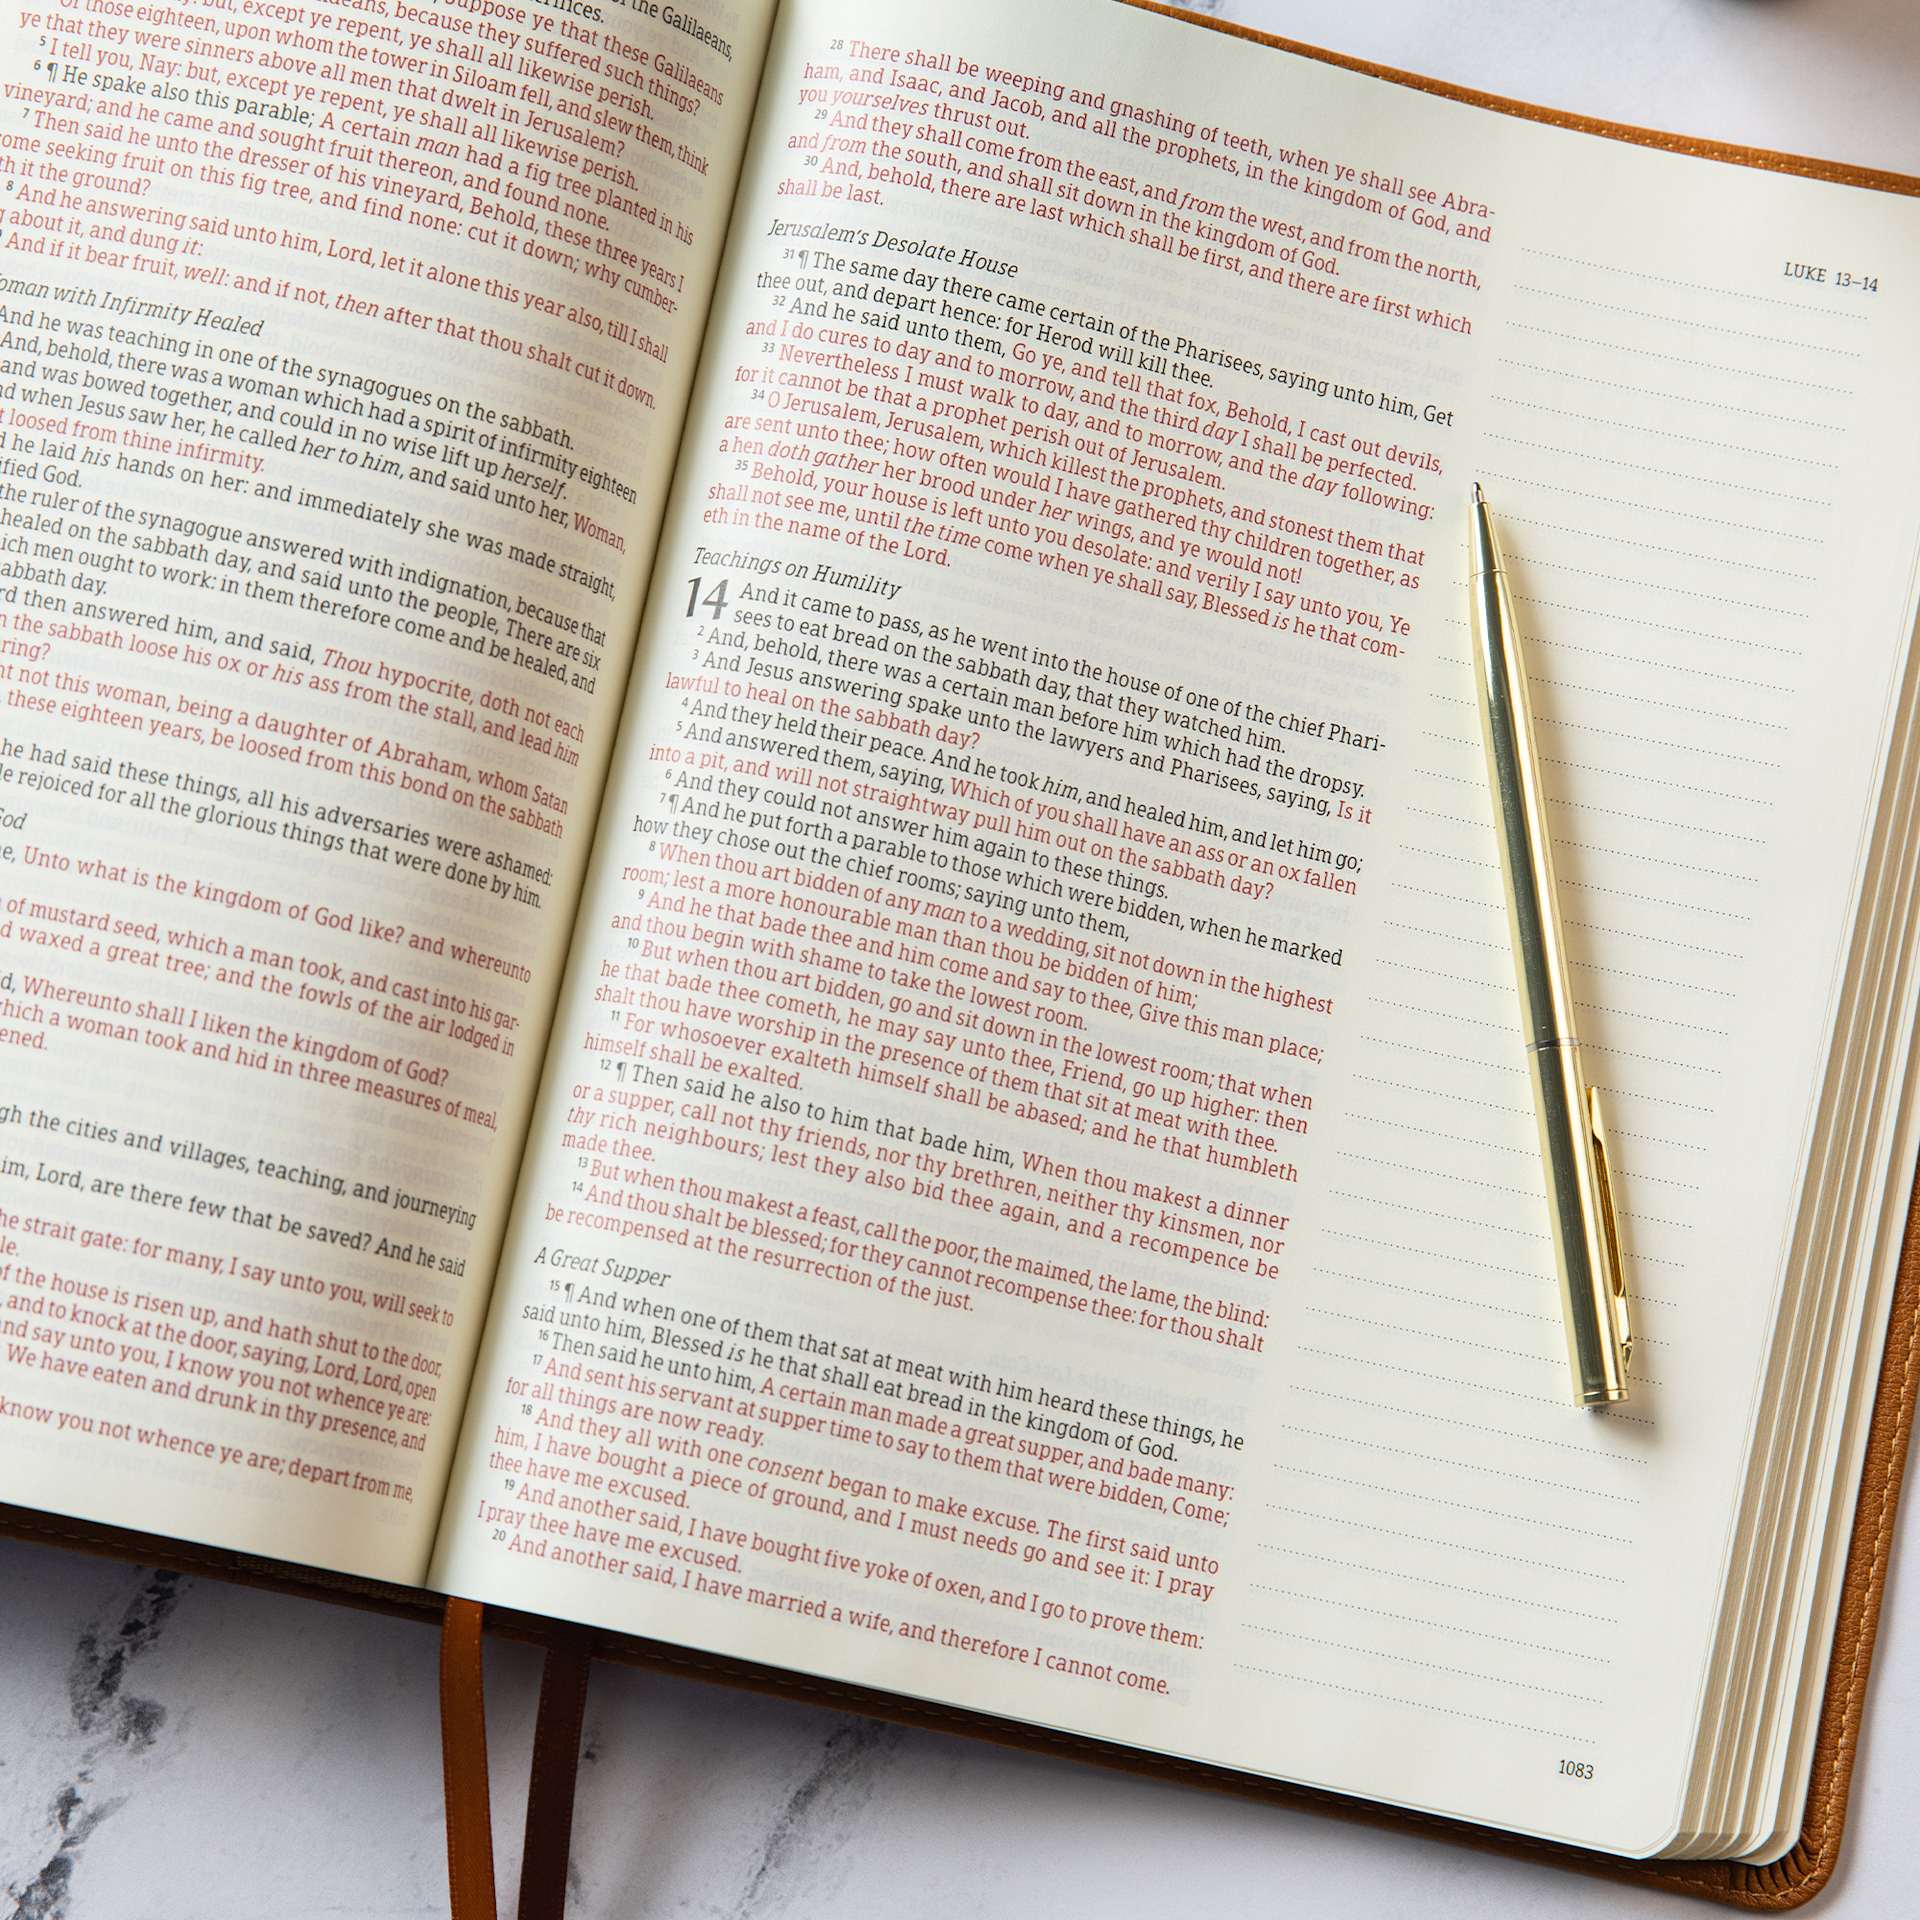 of the Galilaeans,
rifices.
Suppose ye that these Galilaeans
deans, because they suffered such things?
but, except ye repent, ye shall all likewise perish.
Or those eighteen, upon whom the tower in Siloam fell, and slew them, think
ye that they were sinners above all men that dwelt in Jerusalem?
5 I tell you, Nay: but, except ye repent, ye shall all likewise perish.
6 ¶ He spake also this parable; A certain man had a fig tree planted in his
vineyard; and he came and sought fruit thereon, and found none.
7 Then said he unto the dresser of his vineyard, Behold, these three years I
come seeking fruit on this fig tree, and find none: cut it down; why cumber-
th it the ground?
8 And he answering said unto him, Lord, let it alone this year also, till I shall
about it, and dung it:
And if it bear fruit, well: and if not, then after that thou shalt cut it down.
oman with Infirmity Healed
And he was teaching in one of the synagogues on the sabbath.
And, behold, there was a woman which had a spirit of infirmity eighteen
and was bowed together, and could in no wise lift up herself.
nd when Jesus saw her, he called her to him, and said unto her, Woman,
t loosed from thine infirmity.
d he laid his hands on her: and immediately she was made straight,
ified God.
the ruler of the synagogue answered with indignation, because that
healed on the sabbath day, and said unto the people, There are six
ich men ought to work: in them therefore come and be healed, and
abbath day.
rd then answered him, and said, Thou hypocrite, doth not each
n the sabbath loose his ox or his ass from the stall, and lead him
ring?
ht not this woman, being a daughter of Abraham, whom Satan
, these eighteen years, be loosed from this bond on the sabbath
he had said these things, all his adversaries were ashamed:
le rejoiced for all the glorious things that were done by him.
God
e, Unto what is the kingdom of God like? and whereunto
of mustard seed, which a man took, and cast into his gar-
d waxed a great tree; and the fowls of the air lodged in
d, Whereunto shall I liken the kingdom of God?
which a woman took and hid in three measures of meal,
ened.
gh the cities and villages, teaching, and journeying
im, Lord, are there few that be saved? And he said
he strait gate: for many, I say unto you, will seek to
le.
of the house is risen up, and hath shut to the door,
, and to knock at the door, saying, Lord, Lord, open
nd say unto you, I know you not whence ye are:
We have eaten and drunk in thy presence, and
know you not whence ye are; depart from me,
28 There shall be weeping and gnashing of teeth, when ye shall see Abra-
ham, and Isaac, and Jacob, and all the prophets, in the kingdom of God, and
you yourselves thrust out.
29 And they shall come from the east, and from the west, and from the north,
and from the south, and shall sit down in the kingdom of God.
30 And, behold, there are last which shall be first, and there are first which
shall be last.
Jerusalem's Desolate House
31 ¶ The same day there came certain of the Pharisees, saying unto him, Get
thee out, and depart hence: for Herod will kill thee.
32 And he said unto them, Go ye, and tell that fox, Behold, I cast out devils,
and I do cures to day and to morrow, and the third day I shall be perfected.
33 Nevertheless I must walk to day, and to morrow, and the day following:
for it cannot be that a prophet perish out of Jerusalem.
34 O Jerusalem, Jerusalem, which killest the prophets, and stonest them that
are sent unto thee; how often would I have gathered thy children together, as
a hen doth gather her brood under her wings, and ye would not!
35 Behold, your house is left unto you desolate: and verily I say unto you, Ye
shall not see me, until the time come when ye shall say, Blessed is he that com-
eth in the name of the Lord.
Teachings on Humility
14 And it came to pass, as he went into the house of one of the chief Phari-
sees to eat bread on the sabbath day, that they watched him.
2 And, behold, there was a certain man before him which had the dropsy.
3 And Jesus answering spake unto the lawyers and Pharisees, saying, Is it
lawful to heal on the sabbath day?
4 And they held their peace. And he took him, and healed him, and let him go;
5 And answered them, saying, Which of you shall have an ass or an ox fallen
into a pit, and will not straightway pull him out on the sabbath day?
6 And they could not answer him again to these things.
7 ¶ And he put forth a parable to those which were bidden, when he marked
how they chose out the chief rooms; saying unto them,
8 When thou art bidden of any man to a wedding, sit not down in the highest
room; lest a more honourable man than thou be bidden of him;
9 And he that bade thee and him come and say to thee, Give this man place;
and thou begin with shame to take the lowest room.
10 But when thou art bidden, go and sit down in the lowest room; that when
he that bade thee cometh, he may say unto thee, Friend, go up higher: then
shalt thou have worship in the presence of them that sit at meat with thee.
11 For whosoever exalteth himself shall be abased; and he that humbleth
himself shall be exalted.
12 ¶ Then said he also to him that bade him, When thou makest a dinner
or a supper, call not thy friends, nor thy brethren, neither thy kinsmen, nor
thy rich neighbours; lest they also bid thee again, and a recompence be
made thee.
13 But when thou makest a feast, call the poor, the maimed, the lame, the blind:
14 And thou shalt be blessed; for they cannot recompense thee: for thou shalt
be recompensed at the resurrection of the just.
A Great Supper
15 ¶ And when one of them that sat at meat with him heard these things, he
said unto him, Blessed is he that shall eat bread in the kingdom of God.
16 Then said he unto him, A certain man made a great supper, and bade many:
17 And sent his servant at supper time to say to them that were bidden, Come;
for all things are now ready.
18 And they all with one consent began to make excuse. The first said unto
him, I have bought a piece of ground, and I must needs go and see it: I pray
thee have me excused.
19 And another said, I have bought five yoke of oxen, and I go to prove them:
I pray thee have me excused.
20 And another said, I have married a wife, and therefore I cannot come.
LUKE 13–14
1083